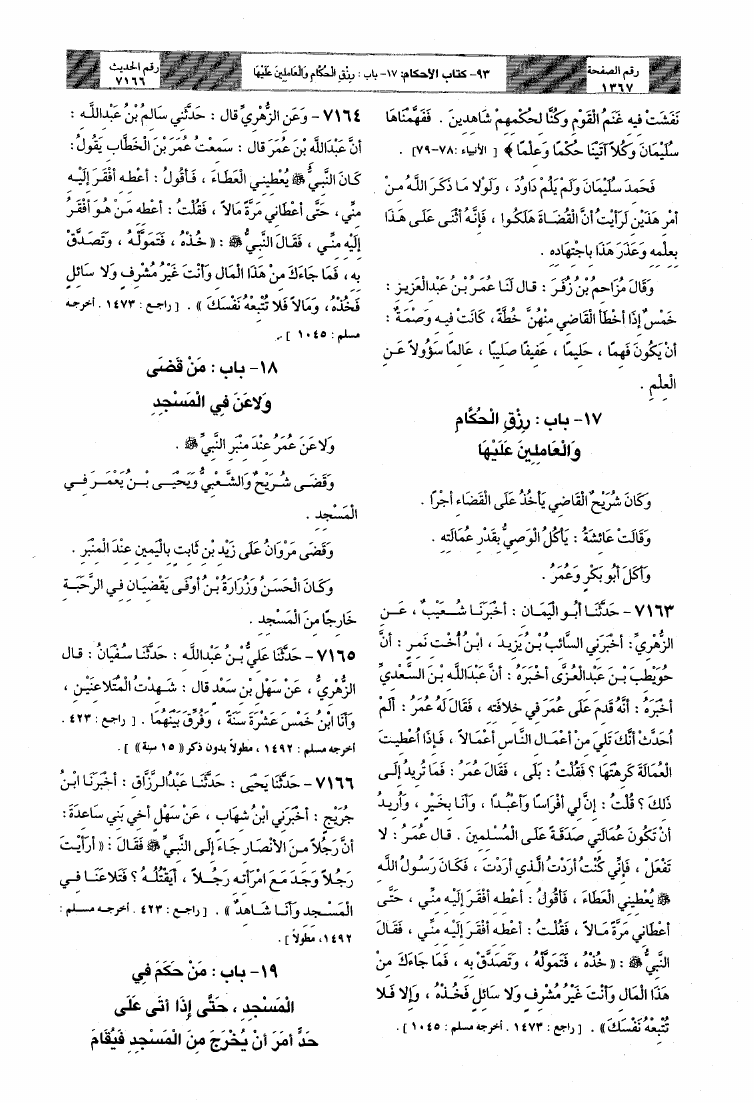 رقم الصفحة
١٣٦٧
٩٣- كتاب الأحكام: ١٧- باب : رِزْقِ الحُكَّامِ وَالعَامِلِينَ عَلَيْهَا
رقم الحديث
٧١٦٦
نَفَشَتْ فِيهِ غَنَمُ الْقَوْمِ وَكُنَّا لِحُكْمِهِمْ شَاهِدِينَ . فَفَهَّمْنَاهَا
سُلَيْمَانَ وَكُلاًّ آتَيْنَا حُكْمًا وَعِلْمًا ﴾ [ الأنبياء :٧٨-٧٩] .
فَحَمِدَ سُلَيْمَانَ وَلَمْ يَلُمْ دَاوُدَ ، وَلَوْلا مَا ذَكَرَ اللَّهُ مِنْ
أمْرِ هَذَيْنِ لَرَأيْتُ أنَّ القُضَاةَ هَلَكُوا ، فَإنَّهُ أثْنَى عَلَى هَذَا
بِعِلْمِهِ وَعَذَرَ هَذَا بِاجْتِهَادِهِ .
وَقَالَ مُزَاحِمُ بْنُ زُفَرَ : قال لَنَا عُمَرُ بْنُ عَبْدِالْعَزِيزِ :
خَمْسٌ إذَا أخْطَأ القَاضِي مِنْهُنَّ خُطَّةً، كَانَتْ فِيهِ وَصْمَةٌ :
أنْ يَكُونَ فَهِمًا ، حَلِيمًا ، عَفِيفًا صَلِيبًا ، عَالِمًا سَؤُولاً عَنِ
الْعِلْمِ .
١٧- باب : رِزْقِ الْحُكَّامِ
وَالْعَامِلِينَ عَلَيْهَا
وَكَانَ شُرَيْحٌ القَاضِي يَأخُذُ عَلَى الْقَضَاءِ أجْرًا .
وَقَالَتْ عَائِشَةُ : يَأكُلُ الْوَصِيُّ بِقَدْرِ عُمَالَتِهِ .
وَأكَلَ أبُو بَكْرٍ وَعُمَرُ .
٧١٦٣- حَدَّثَنَا أبُو الْيَمَانِ : أخْبَرَنَا شُعَيْبٌ ، عَنِ
الزُّهْرِيِّ: أخْبَرَنِي السَّائِبُ بْنُ يَزِيدَ ، ابْنُ أُخْتِ نَمِرٍ : أنَّ
حُوَيْطِبَ بْنَ عَبْدِالْعُزَّى أخْبَرَهُ : أنَّ عَبْدَاللَّهِ بْنَ السَّعْدِيِّ
أخْبَرَهُ : أنَّهُ قَدِمَ عَلَى عُمَرَ فِي خِلافَتِهِ ، فَقَالَ لَهُ عُمَرُ : ألَمْ
أُحَدَّثْ أنَّكَ تَلِيَ مِنْ أعْمَالِ النَّاسِ أعْمَالاً ، فَإذَا أُعْطِيتَ
الْعُمَالَةَ كَرِهْتَهَا ؟ فَقُلْتُ : بَلَى ، فَقَالَ عُمَرُ : فَمَا تُرِيدُ إلَى
ذَلِكَ ؟ قُلْتُ : إنَّ لِي أفْرَاسًا وَأعْبُدًا ، وَأنَا بِخَيْرٍ ، وَأُرِيدُ
أنْ تَكُونَ عُمَالَتِي صَدَقَةً عَلَى الْمُسْلِمِينَ . قال عُمَرُ : لا
تَفْعَلْ ، فَإنِّي كُنْتُ أرَدْتُ الَّذِي أرَدْتَ ، فَكَانَ رَسُولُ اللَّهِ
ﷺ يُعْطِينِي العَطَاءَ ، فَأقُولُ : أعْطِهِ أفْقَرَ إلَيْهِ مِنِّي ، حَتَّى
أعْطَانِي مَرَّةً مَالاً ، فَقُلْتُ : أعْطِهِ أفْقَرَ إلَيْهِ مِنِّي ، فَقَالَ
النَّبِيُّ ﷺ : « خُذْهُ ، فَتَمَوَّلْهُ ، وَتَصَدَّقْ بِهِ ، فَمَا جَاءَكَ مِنْ
هَذَا الْمَالِ وَأنْتَ غَيْرُ مُشْرِفٍ وَلا سَائِلٍ فَخُذْهُ ، وَإلا فَلا
تُتْبِعْهُ نَفْسَكَ» . [ راجع : ١٤٧٣ . أخرجه مسلم : ١٠٤٥ ] .
٧١٦٤- وَعَنِ الزُّهْرِيِّ قال : حَدَّثَنِي سَالِمُ بْنُ عَبْدِاللَّهِ :
أنَّ عَبْدَاللَّهِ بْنَ عُمَرَ قال : سَمِعْتُ عُمَرَ بْنَ الْخَطَّابِ يَقُولُ:
كَانَ النَّبِيُّ ﷺ يُعْطِينِي الْعَطَاءَ ، فَأقُولُ : أعْطِهِ أفْقَرَ إلَيْهِ
مِنِّي، حَتَّى أعْطَانِي مَرَّةً مَالاً ، فَقُلْتُ : أعْطِهِ مَنْ هُوَ أفْقَرُ
إلَيْهِ مِنِّي ، فَقَالَ النَّبِيُّ ﷺ : « خُذْهُ ، فَتَمَوَّلْهُ ، وَتَصَدَّقْ
بِهِ ، فَمَا جَاءَكَ مِنْ هَذَا الْمَالِ وَأنْتَ غَيْرُ مُشْرِفٍ وَلا سَائِلٍ
فَخُذْهُ ، وَمَالاَ فَلا تُتْبِعْهُ نَفْسَكَ » . [ راجع : ١٤٧٣ . أخرجه
مسلم : ١٠٤٥ ] .
١٨- باب : مَنْ قَضَى
وَلاعَنَ فِي الْمَسْجِدِ
وَلاعَنَ عُمَرُ عِنْدَ مِنْبَرِ النَّبِيِّ ﷺ .
وَقَضَى شُرَيْحٌ وَالشَّعْبِيُّ وَيَحْيَى بْنُ يَعْمَرَ فِي
الْمَسْجِدِ .
وَقَضَى مَرْوَانُ عَلَى زَيْدِ بْنِ ثَابِتٍ بِاليَمِينِ عِنْدَ الْمِنْبَرِ .
وَكَانَ الْحَسَنُ وَزُرَارَةُ بْنُ أوْفَى يَقْضِيَانِ فِي الرَّحَبَةِ
خَارِجًا مِنَ الْمَسْجِدِ .
٧١٦٥- حَدَّثَنَا عَلِيُّ بْنُ عَبْدِاللَّهِ : حَدَّثَنَا سُفْيَانُ : قال
الزُّهْرِيُّ ، عَنْ سَهْلِ بْنِ سَعْدٍ قال : شَهِدْتُ الْمُتَلاعِنَيْنِ ،
وَأنَا ابْنُ خَمْسَ عَشْرَةَ سَنَةً ، وَفُرِّقَ بَيْنَهُمَا . [ راجع : ٤٢٣ .
أخرجه مسلم : ١٤٩٢ ، مطولاً بدون ذكر «١٥ سنة» ] .
٧١٦٦- حَدَّثَنَا يَحْيَى : حَدَّثَنَا عَبْدُالرَّزَّاقِ : أخْبَرَنَا ابْنُ
جُرَيْجٍ : أخْبَرَنِي ابْنُ شِهَابٍ ، عَنْ سَهْلٍ أخِي بَنِي سَاعِدَةَ :
أنَّ رَجُلاً مِنَ الأنْصَارِ جَاءَ إلَى النَّبِيِّ ﷺ فَقَالَ : « أرَأيْتَ
رَجُلاً وَجَدَ مَعَ امْرَأتِهِ رَجُلاً ، أيَقْتُلُهُ ؟ فَتَلاعَنَا فِي
الْمَسْجِدِ وَأنَا شَاهِدٌ » . [ راجع : ٤٢٣ . أخرجه مسلم :
١٤٩٢، مطولاً ] .
١٩- باب : مَنْ حَكَمَ فِي
الْمَسْجِدِ ، حَتَّى إذَا أتَى عَلَى
حَدٍّ أمَرَ أنْ يُخْرَجَ مِنَ الْمَسْجِدِ فَيُقَامَ